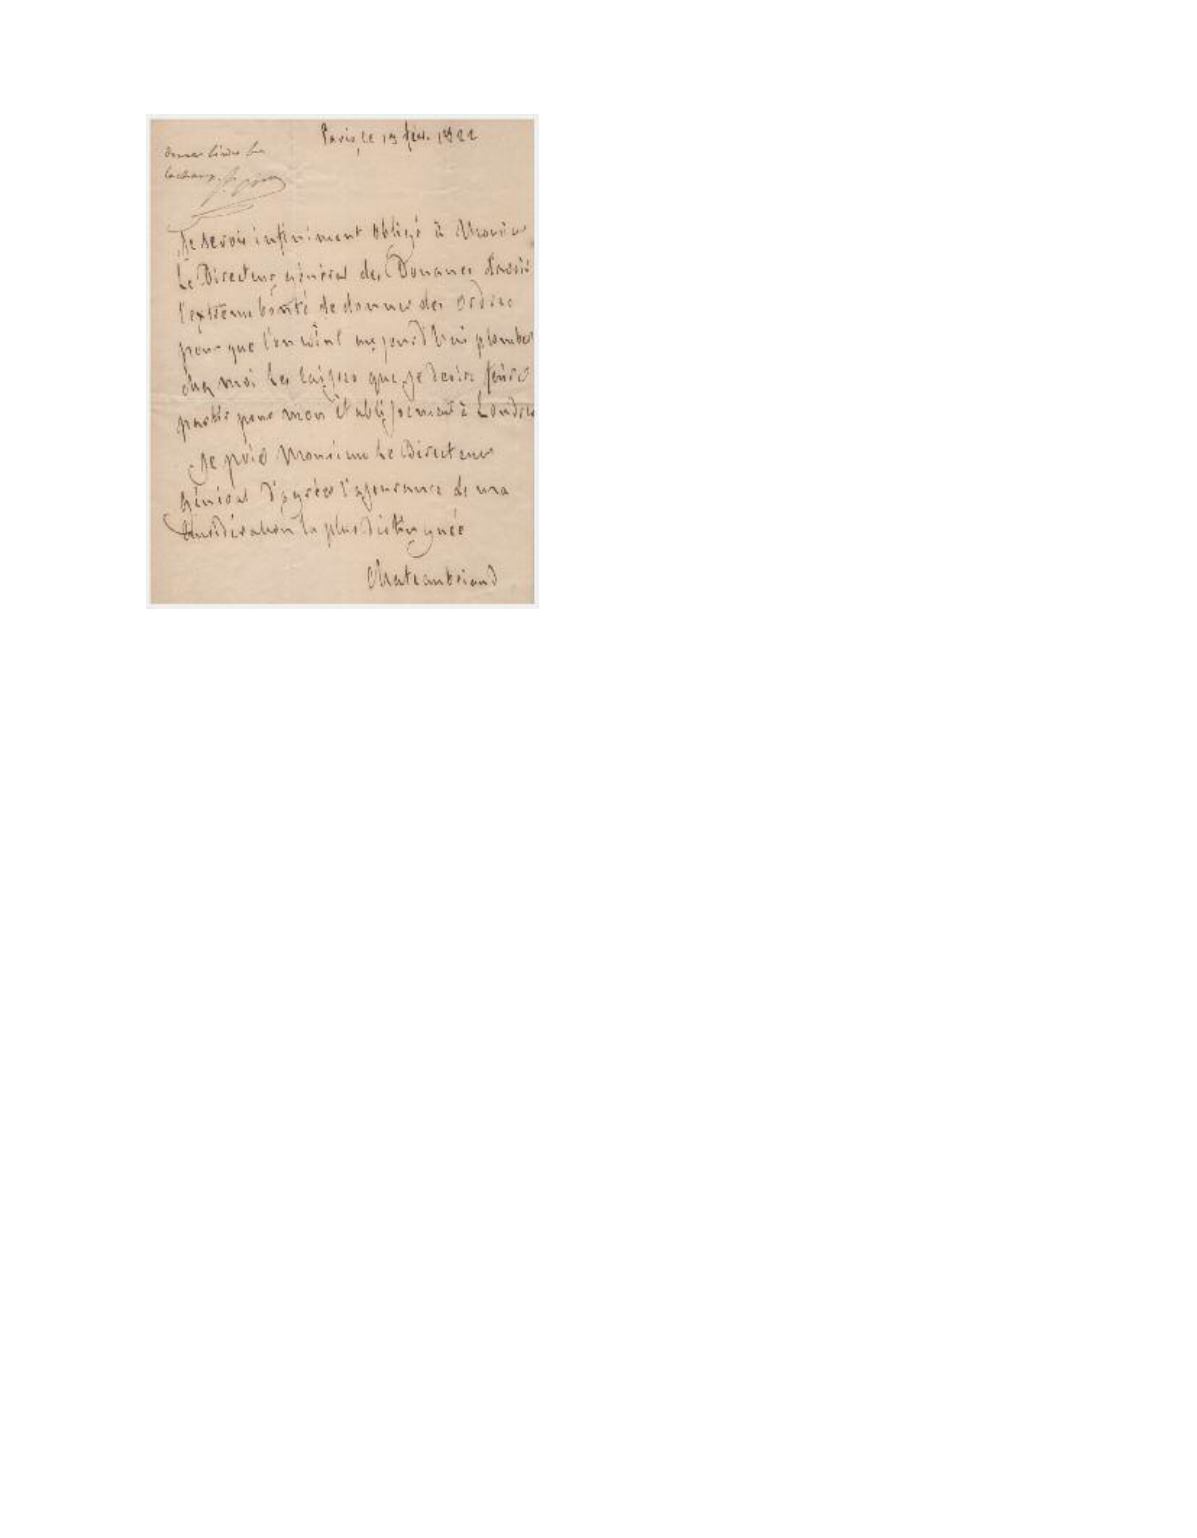 Paris, le 13 fév. 1822
donner l'ordre
Je serois infiniment obligé à Monsieur
Le Directeur général des Douanes d'avoir
l'extrême bonté de donner des ordres
pour que l'on vint aujourd'hui plomber
chez moi les caisses que je désire faire
partir pour mon établissement à Londres
Je prie Monsieur Le Directeur
général d'agréer l'assurance de ma
considération la plus distinguée
Chateaubriand